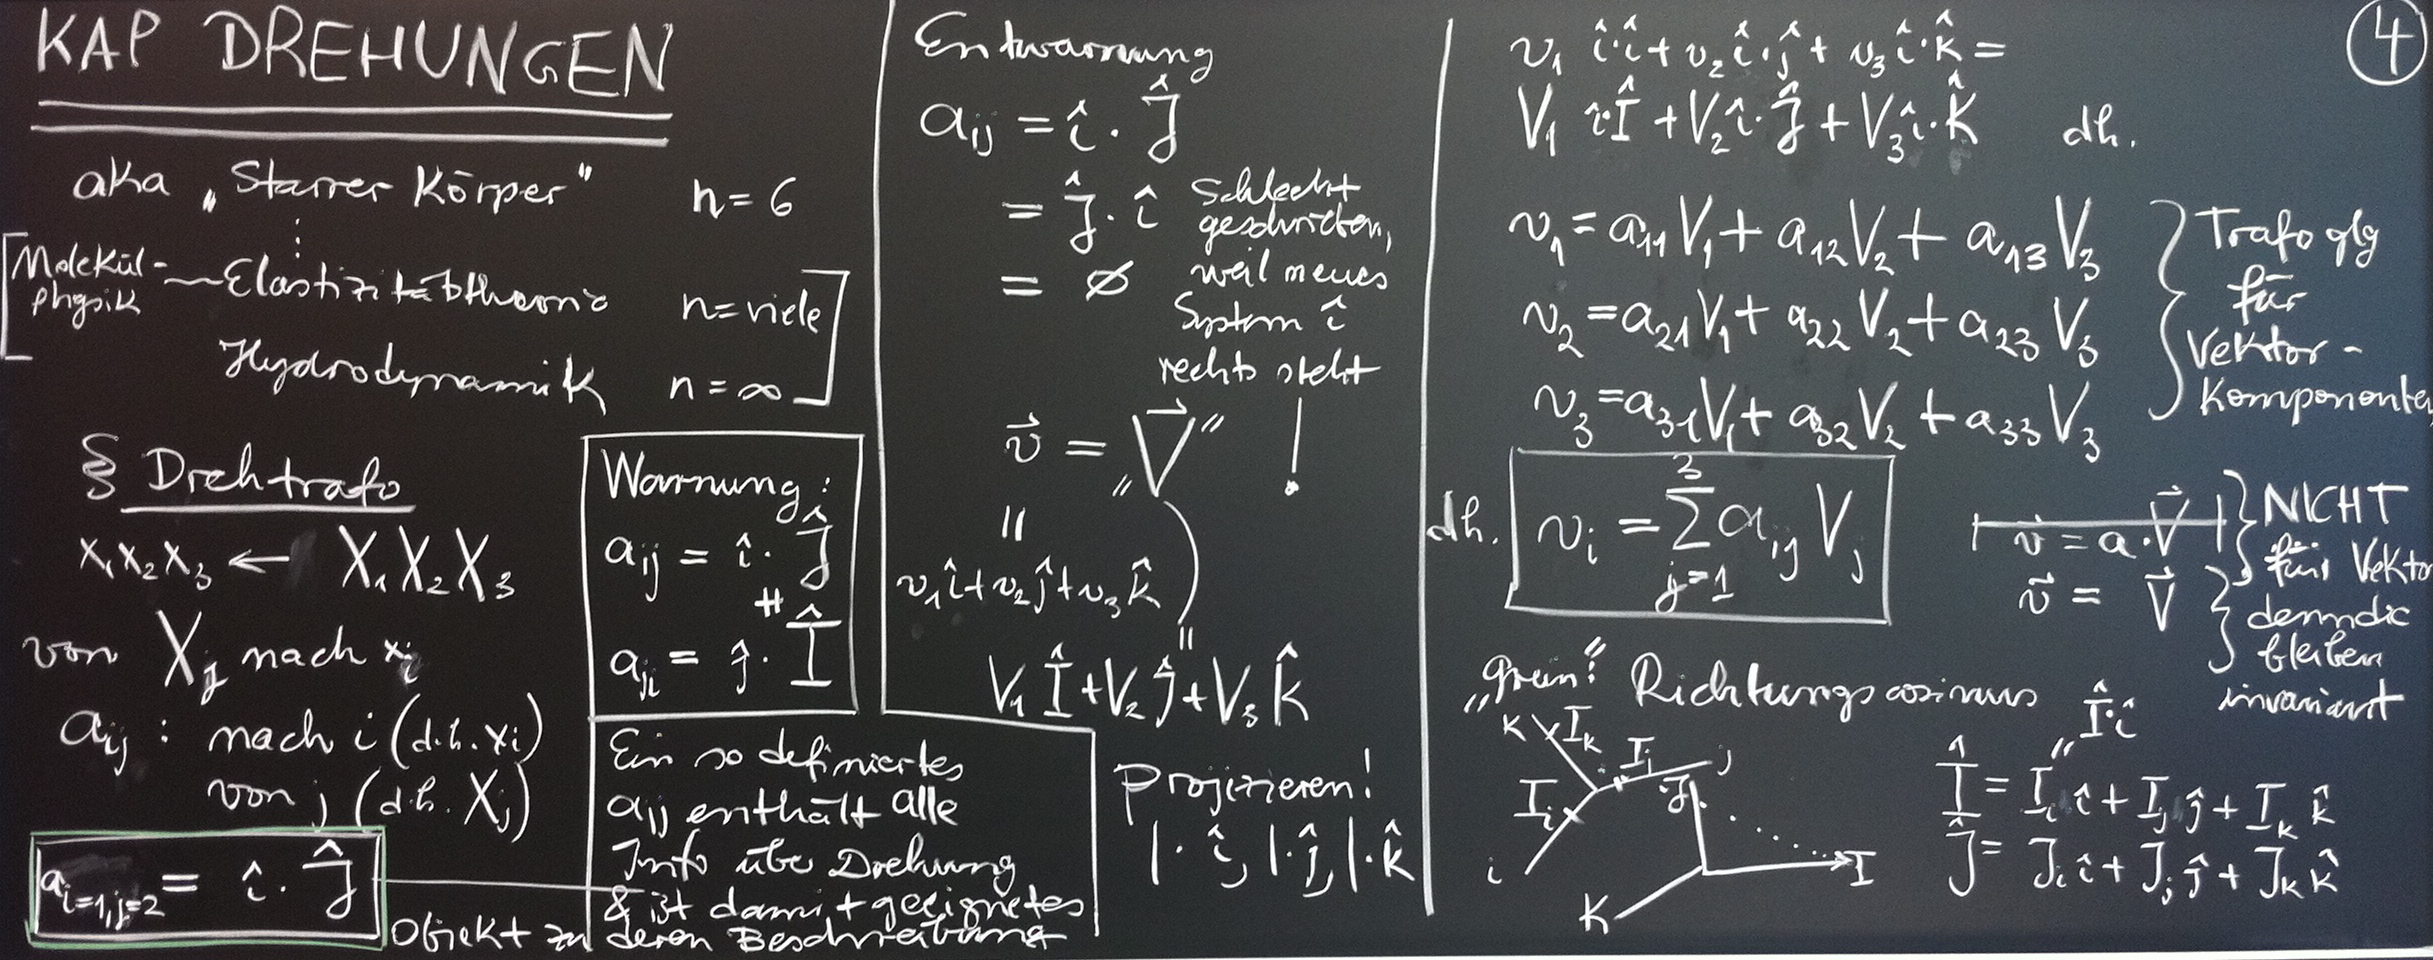 KAP DREHUNGEN
aka „Starrer Körper" n = 6
[Molekül-
physik
Elastizitätstheorie n = viele
Hydrodynamik n = ∞]
§ Drehtrafo
x₁x₂x₃ ← X₁X₂X₃
von X_j nach x_i
a_ij : nach i (d.h. x_i)
von j (d.h. X_j)
a_i=1,j=2 = î · Ĵ
Warnung:
a_ij = î · Ĵ
≠
a_ji = ĵ · Î
Ein so definiertes
a_ij enthält alle
Info über Drehung
& ist damit geeignetes
Objekt zu deren Beschreibung
Entwarnung
a_ij = î · Ĵ
= Ĵ · î
= ∅
Schlecht
geschrieben,
weil neues
System î
rechts steht
!
v⃗ = „V⃗"
=
v₁î + v₂ĵ + v₃k̂
=
V₁Î + V₂Ĵ + V₃K̂
Projizieren!
|· î, |· ĵ, |· k̂
4
v₁ î·î + v₂ î·ĵ + v₃ î·k̂ =
V₁ î·Î + V₂ î·Ĵ + V₃ î·K̂ dh.
v₁ = a₁₁V₁ + a₁₂V₂ + a₁₃V₃
v₂ = a₂₁V₁ + a₂₂V₂ + a₂₃V₃
v₃ = a₃₁V₁ + a₃₂V₂ + a₃₃V₃
Trafo glg
für
Vektor-
Komponenten
dh. v_i = Σ_{j=1}^{3} a_ij V_j
v⃗ = a·V⃗
v⃗ = V⃗
NICHT
für Vektor
denn die
bleiben
invariant
Richtungscosinus
k I_k
I_i I_j j
i
J
I
K
Î·î
"
Î = I_i î + I_j ĵ + I_k k̂
Ĵ = J_i î + J_j ĵ + J_k k̂